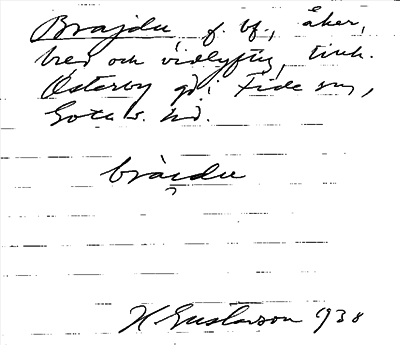 Brajdu f. bf., åker,
bred och vidlyftig, tillh.
Österby gd i Fide sn,
Gotl. s. hd.
bràidu
H Gustavson 1938